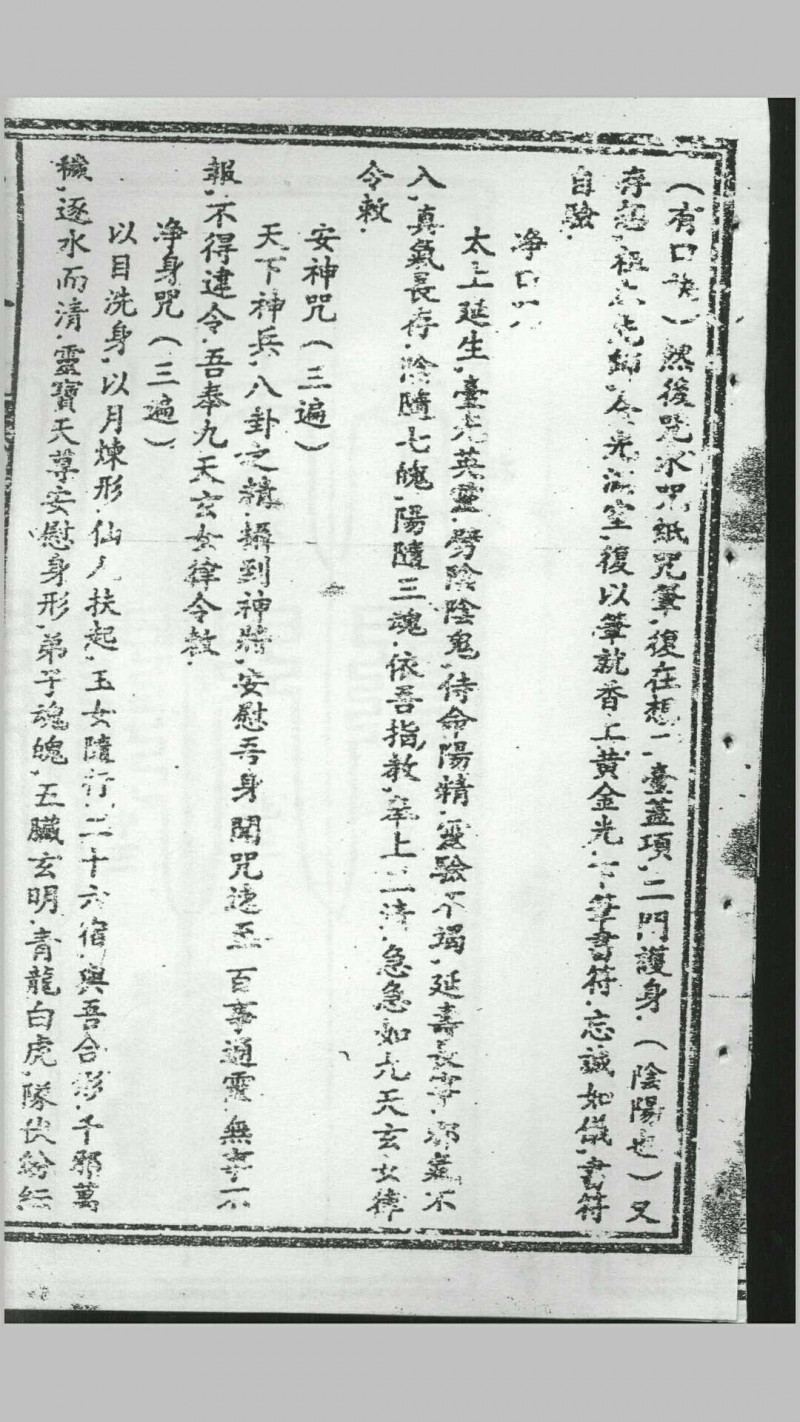 （有口訣）然後咒水咒紙咒筆、復在想二臺蓋項、二門護身、（陰陽也）又
存想、祖本先師、金光滿空、復以筆就香上黃金光、下筆書符、忘誠如儀、書符
自驗、
淨口咒
太上延生、臺光英靈、劈陰陰鬼、侍命陽精、靈驗不竭、延壽長寧、邪氣不
入、真氣長存、陰隨七魄、陽隨三魂、依吾指教、奉上三清、急急如九天玄女律
令敕、
安神咒（三遍）
天下神兵、八卦之精、攝到神將、安慰吾身、聞咒速至、百事通靈、無事不
報、不得違令、吾奉九天玄女律令敕、
淨身咒（三遍）
以目洗身、以月煉形、仙人扶起、玉女隨行、二十六宿、與吾合形、千邪萬
穢、逐水而清、靈寶天尊、安慰身形、弟子魂魄、五臟玄明、青龍白虎、隊仗紛紜